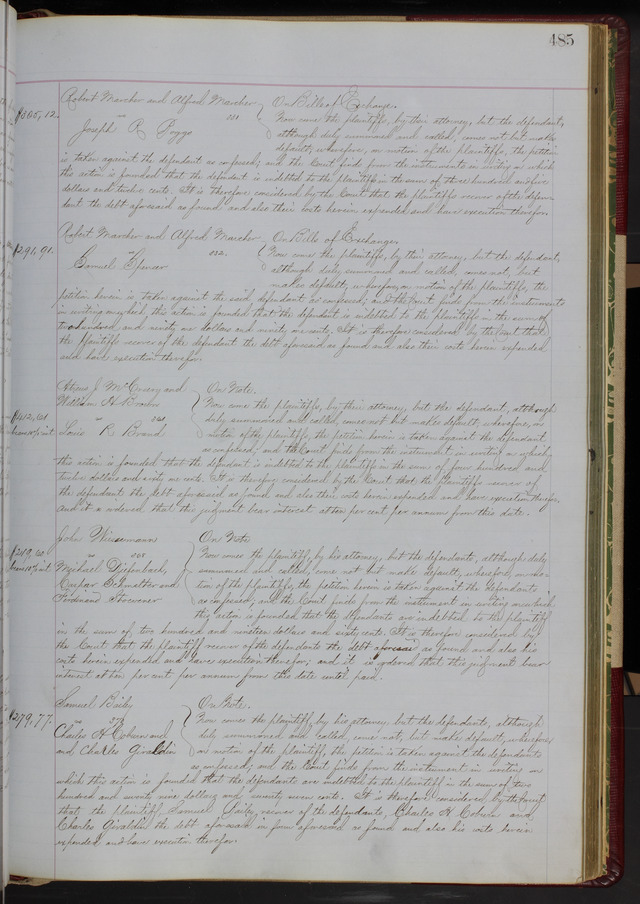 485
Robert Marcher and Alfred Marcher } On Bills of Exchange.
$305,12. vs Now come the plaintiffs, by their attorney, but the defendant,
Joseph R although duly summoned and called, comes not but makes
default; wherefore, on motion of the plaintiffs, the petition
is taken against the defendant as confessed; and the Court finds from the instruments in writing on which
this action is founded that the defendant is indebted to the plaintiffs in the sum of three hundred and five
dollars and twelve cents. It is therefore considered by the Court that the plaintiffs recover of the defen-
dant the debt aforesaid as found and also their costs herein expended and have execution therefor.
Robert Marcher and Alfred Marcher } On Bills of Exchange.
$291,91. vs Now come the plaintiffs, by their attorney, but the defendant,
Samuel Spencer although duly summoned and called, comes not, but
makes default; wherefore, on motion of the plaintiffs, the
petition herein is taken against the said defendant as confessed; and the Court finds from the instruments
in writing on which this action is founded that the defendant is indebted to the plaintiffs in the sum of
two hundred and ninety one dollars and ninety one cents. It is therefore considered by the Court that
the plaintiffs recover of the defendant the debt aforesaid as found and also their costs herein expended
and have execution therefor.
and } On Note.
William H Brown Now come the plaintiffs, by their attorney, but the defendant, although
vs duly summoned and called, comes not but makes default; wherefore, on
R Brand motion of the plaintiffs, the petition herein is taken against the defendant
as confessed; and the Court finds from the instrument in writing on which
this action is founded that the defendant is indebted to the plaintiffs in the sum of four hundred and
twelve dollars and cents. It is therefore considered by the Court that the plaintiffs recover of
the defendant the debt aforesaid as found and also their costs herein expended and have execution therefor.
And it is ordered that the judgment bear interest at ten per cent per annum from this date.
John } On Note
$219,60 vs Now comes the plaintiff, by his attorney, but the defendants, although duly
Michael summoned and called, come not but make default; wherefore, on mo-
Caspar and tion of the plaintiff, the petition herein is taken against the defendants
Ferdinand as confessed; and the Court finds from the instrument in writing on which
this action is founded that the defendants are indebted to the plaintiff
in the sum of two hundred and nineteen dollars and sixty cents. It is therefore considered by
the Court that the plaintiff recover of the defendants the debt aforesaid as found and also his
costs herein expended and have execution therefor; and it is ordered that this judgment bear
interest at ten per cent per annum from this date until paid.
Samuel } On Note.
$279,77. vs Now comes the plaintiff, by his attorney, but the defendants, although
Charles H Coburn and duly summoned and called, come not, but make default; wherefore
and Charles Giraldin on motion of the plaintiff, the petition is taken against the defendants
as confessed; and the Court finds from the instrument in writing on
which this action is founded that the defendants are indebted to the plaintiff in the sum of two
hundred and seventy nine dollars and seventy seven cents. It is therefore considered by the Court
that the plaintiff, Samuel recover of the defendants, Charles H Coburn and
Charles Giraldin the debt aforesaid in form aforesaid as found and also his costs herein
expended and have execution therefor.